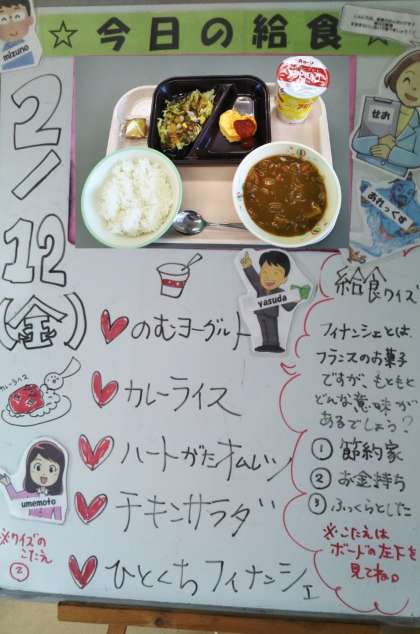 mizuno
☆今日の給食☆
せお
あれっくす
2/12(金)
yasuda
のむヨーグルト
カレーライス
カレーライス
ハートがたオムレツ
umemoto
チキンサラダ
ひとくちフィナンシェ
※クイズの
こたえ
②
給食クイズ
フィナンシェとは、
フランスのお菓子
ですが、もともと
どんな意味が
あるでしょう?
① 節約家
② お金持ち
③ ふっくらとした
※こたえは
ボードの左下を
見てね。